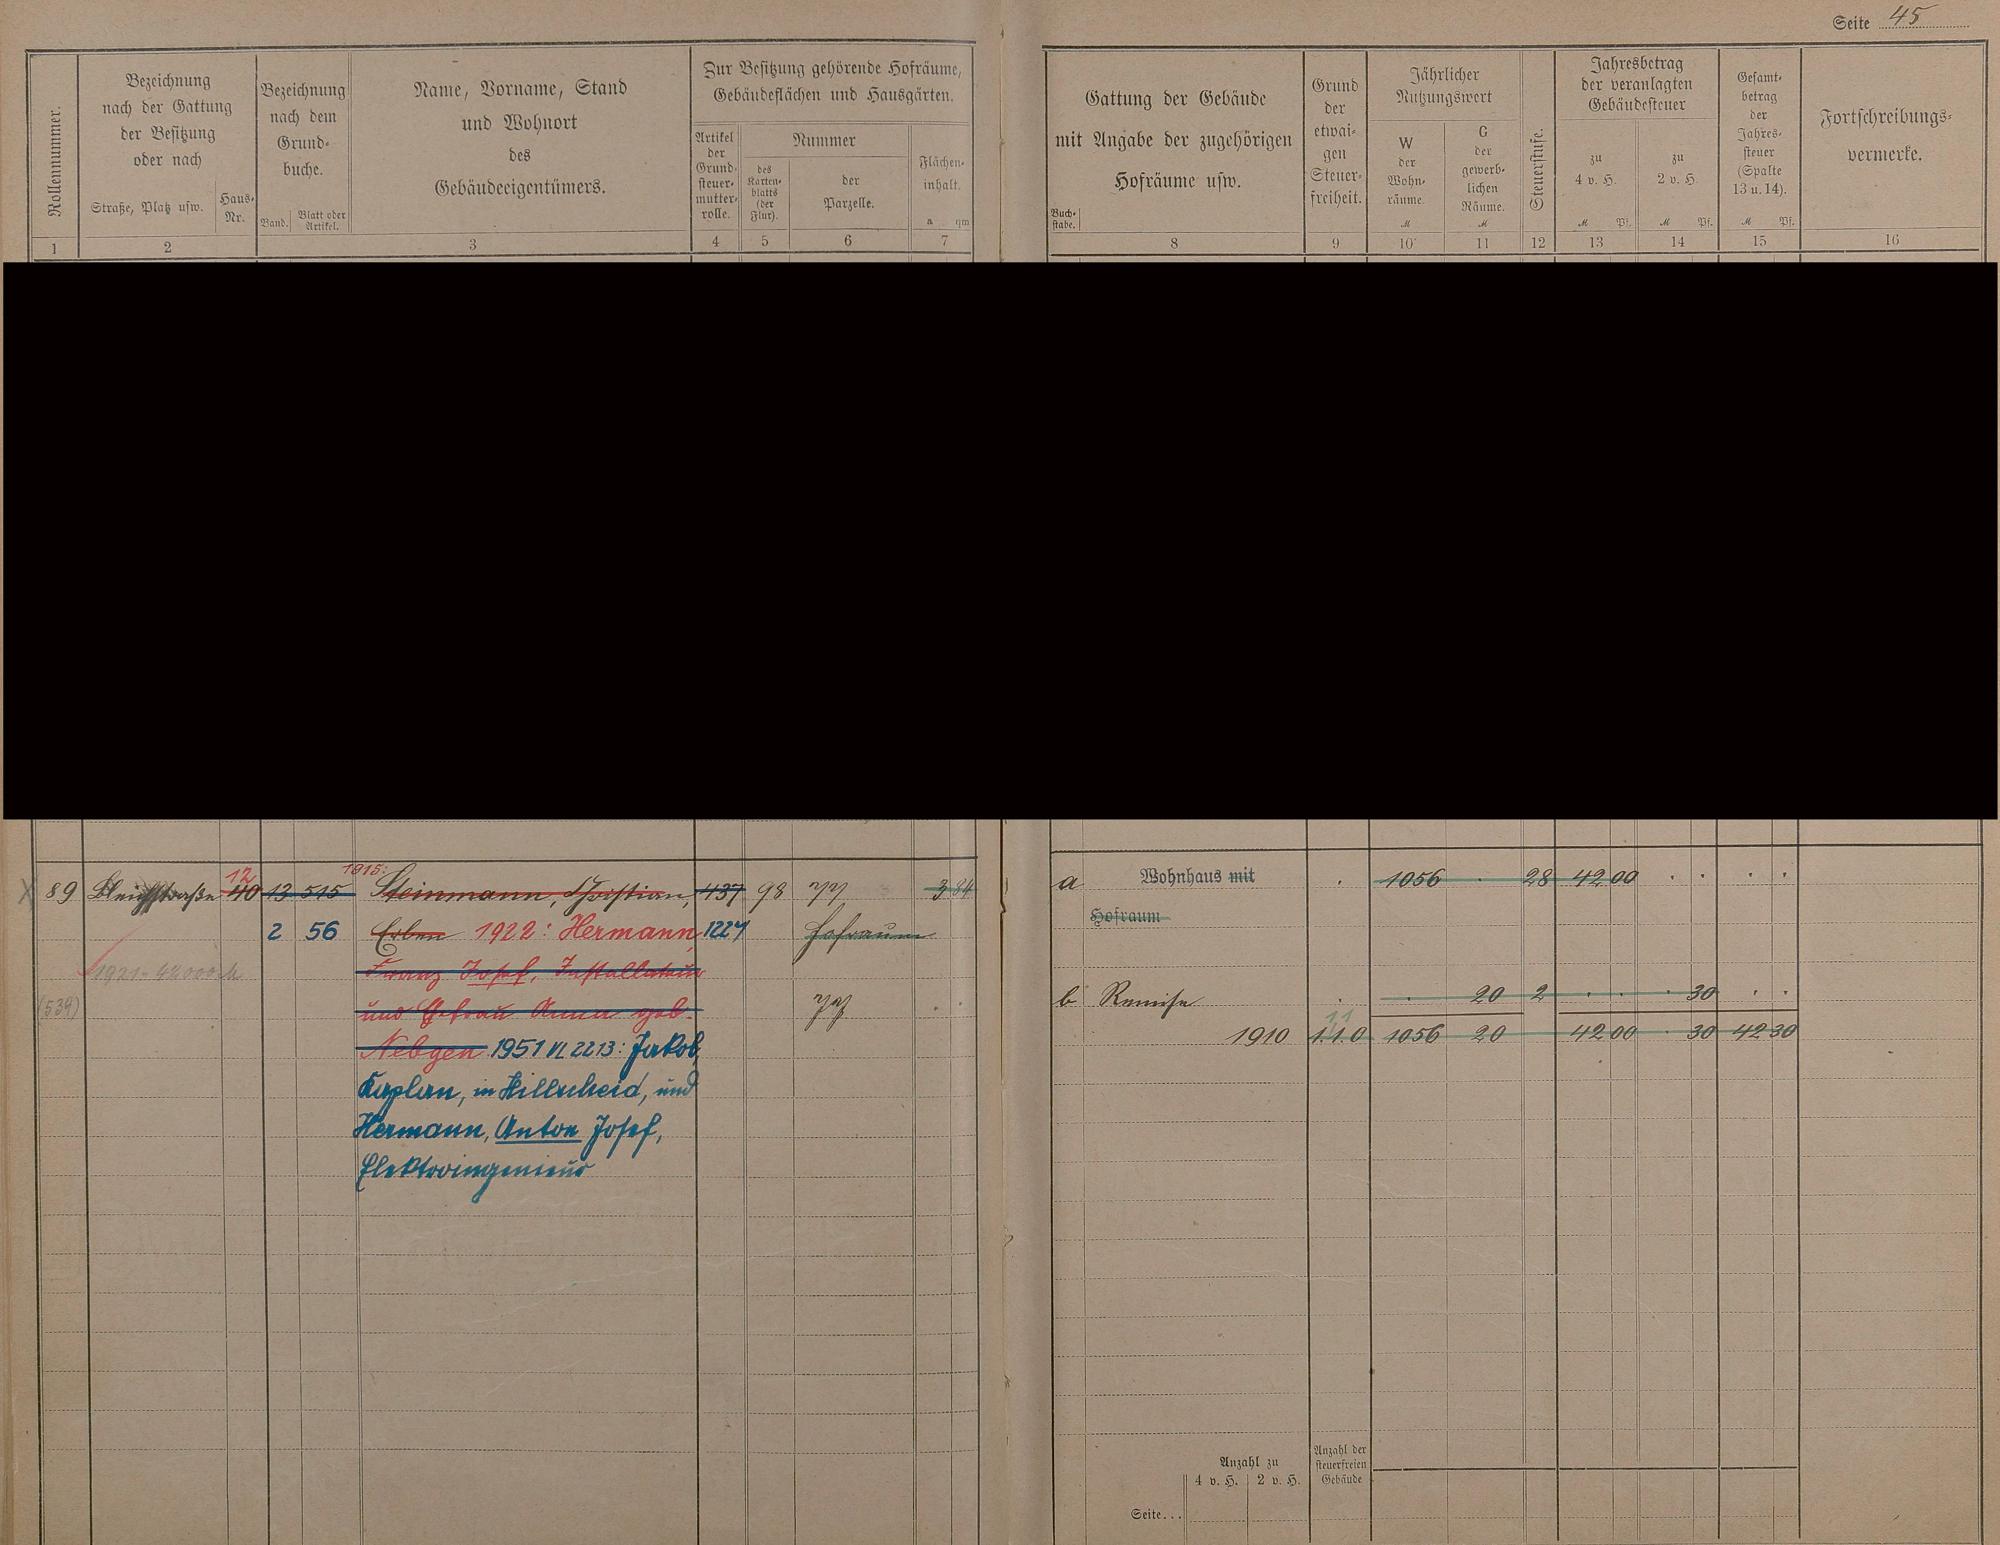 Seite 45
Rollennummer.
Bezeichnung
nach der Gattung
der Besitzung
oder nach
Straße, Platz usw.
Haus-
Nr.
Bezeichnung
nach dem
Grund-
buche.
Band.
Blatt oder
Artikel.
Name, Vorname, Stand
und Wohnort
des
Gebäudeeigentümers.
Zur Besitzung gehörende Hofräume,
Gebäudeflächen und Hausgärten.
Artikel
der
Grund-
steuer-
mutter-
rolle.
Nummer
des
Karten-
blatts
(der
Flur).
der
Parzelle.
Flächen-
inhalt.
a qm
1 2 3 4 5 6 7
Gattung der Gebäude
mit Angabe der zugehörigen
Hofräume usw.
Buch-
stabe.
Grund
der
etwai-
gen
Steuer-
freiheit.
Jährlicher
Nutzungswert
W
der
Wohn-
räume.
M
G
der
gewerb-
lichen
Räume.
M
Steuerstufe.
Jahresbetrag
der veranlagten
Gebäudesteuer
zu
4 v. H.
M Pf.
zu
2 v. H.
M Pf.
Gesamt-
betrag
der
Jahres-
steuer
(Spalte
13 u. 14).
M Pf.
Fortschreibungs-
vermerke.
8 9 10 11 12 13 14 15 16
12 1915:
89 Bleichstraße 40 13 515 Steinmann, Christian, 437 98 3 84
2 56 Erben 1922: Hermann, 1227 Hofraum
1921- 42000 M Franz Josef, Installateur
(539) und Ehefrau Anna geb.
Nebgen 1951 VL 2213: Jakob,
Kaplan, in Hillscheid, und
Hermann, Anton Josef,
Elektroingenieur
a Wohnhaus mit . 1056 . 28 42 00 . . . .
Hofraum
b Remise . . 20 2 . . . 30 . .
11
1910 1.1.0 1056 20 42 00 . 30 42 30
Anzahl zu
4 v. H. 2 v. H.
Anzahl der
steuerfreien
Gebäude
Seite...